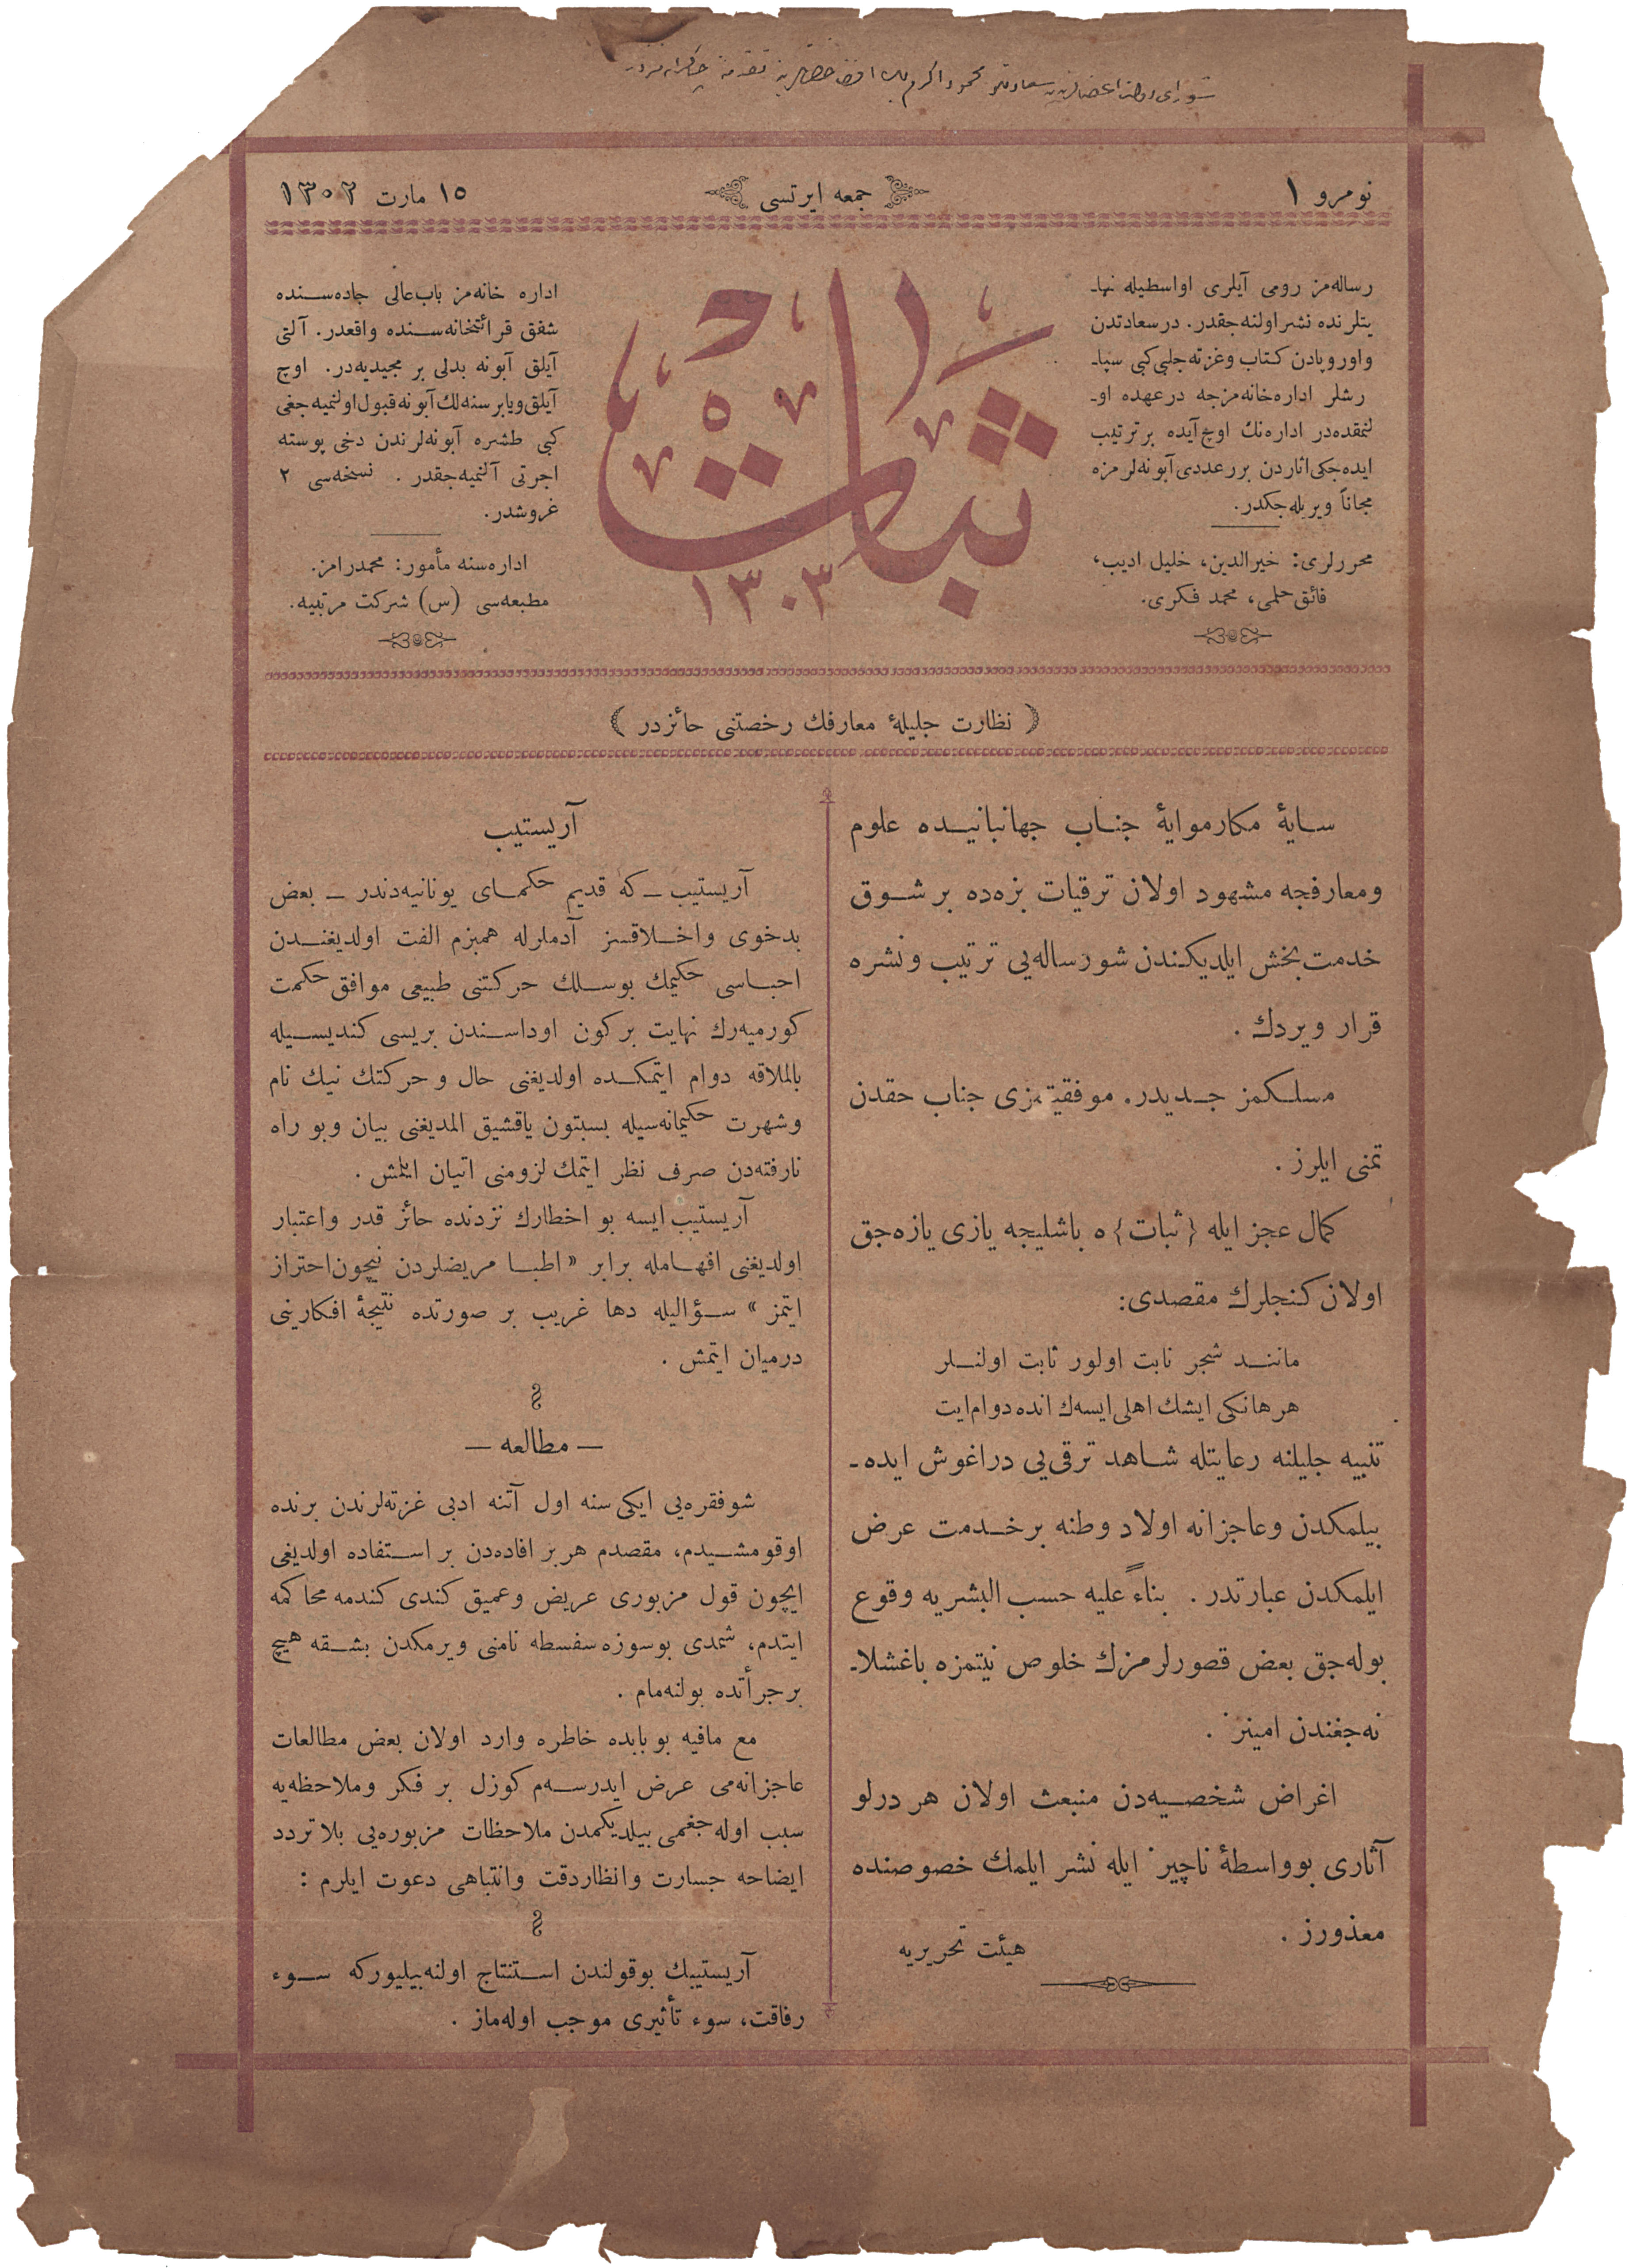 شورای دولت اعضالرندن سعادتلو محمود اكرم بك افندی حضرتلرینه تقدمهٔ چاكرانه‌مزدر
نومرو ١
جمعه ایرتسی
١٥ مارت ١٣٠٢
رساله‌مز رومی آیلری اواسطیله نها-
یتلرنده نشر اولنه‌جقدر. درسعادتدن
واوروپادن كتاب وغزته جلبی كبی سپا-
رشلر اداره‌خانه‌مزجه درعهده او-
لنمقده‌در اداره‌نك اوچ آیده بر ترتیب
ایده‌جكی اثاردن برر عددی آبونه‌لرمزه
مجاناً ویریله‌جكدر.
محررلری: خیرالدین، خلیل ادیب،
فائق حلمی، محمد فكری.
ثبات
١٣٠٣
اداره خانه‌مز باب‌عالی جاده‌سنده
شفق قرائتخانه‌سنده واقعدر. آلتی
آیلق آبونه بدلی بر مجیدیه‌در. اوچ
آیلق ویا بر سنه‌لك آبونه قبول اولنمیه‌جغی
كبی طشره آبونه‌لرندن دخی پوسته
اجرتی آلنمیه‌جقدر. نسخه‌سی ٢
غروشدر.
اداره‌سنه مأمور: محمدرامز.
مطبعه‌سی (س) شركت مرتبیه.
( نظارت جلیلهٔ معارفك رخصتنی حائزدر )
سایهٔ مكارموایهٔ جناب جهانبانیده علوم
ومعارفجه مشهود اولان ترقیات بزه‌ده بر شوق
خدمت بخش ایلدیكندن شو رساله‌یی ترتیب ونشره
قرار ویردك .
مسلكمز جدیدر. موفقیتمزی جناب حقدن
تمنی ایلرز .
كمال عجز ایله {ثبات}ه باشلیجه یازی یازه‌جق
اولان كنجلرك مقصدی:
مانند شجر نابت اولور ثابت اولنلر
هر هانكی ایشك اهلی ایسه‌ك انده دوام ایت
تنبیه جلیلنه رعایتله شاهد ترقی‌یی دراغوش ایده-
بیلمكدن وعاجزانه اولاد وطنه بر خدمت عرض
ایلمكدن عبارتدر . بناءً علیه حسب البشریه وقوع
بوله‌جق بعض قصورلرمزك خلوص نیتمزه باغشلا-
نه‌جغندن امینز .
اغراض شخصیه‌دن منبعث اولان هر درلو
آثاری بو واسطهٔ ناچیز ایله نشر ایلمك خصوصنده
معذورز .
هیئت تحریریه
آریستیپ
آریستیپ ــ كه قدیم حكمای یونانیه‌دندر ــ بعض
بدخوی واخلاقسز آدملرله همبزم الفت اولدیغندن
احباسی حكیمك بوسلك حركتنی طبیعی موافق حكمت
كورمیه‌رك نهایت بركون اوداسندن بریسی كندیسیله
بالملاقه دوام ایتمكده اولدیغی حال و حركتك نیك نام
وشهرت حكیمانه‌سیله بسبتون یاقشیق المدیغنی بیان وبو راه
نارفته‌دن صرف نظر ایتمك لزومنی اتیان ایلمش .
آریستیپ ایسه بو اخطارك نزدنده حائز قدر واعتبار
اولدیغنی افهامله برابر « اطبا مریضلردن نیچون احتراز
ایتمز » سؤالیله دها غریب بر صورتده نتیجهٔ افكارینی
درمیان ایتمش .
— مطالعه —
شو فقره‌یی ایكی سنه اول آتنه ادبی غزته‌لرندن برنده
اوقومشیدم، مقصدم هر بر افاده‌دن بر استفاده اولدیغی
ایچون قول مزبوری عریض وعمیق كندی كندمه محاكمه
ایتدم، شمدی بوسوزه سفسطه نامنی ویرمكدن بشقه هیچ
بر جرأتده بولنه‌مام .
مع مافیه بو بابده خاطره وارد اولان بعض مطالعات
عاجزانه‌می عرض ایدرسه‌م كوزل بر فكر وملاحظه‌یه
سبب اوله‌جغمی بیلدیكمدن ملاحظات مزبوره‌یی بلا تردد
ایضاحه جسارت وانظاردقت وانتباهی دعوت ایلرم :
آریستیپك بوقولندن استنتاج اولنه‌بیلیوركه سوء
رفاقت، سوء تأثیری موجب اوله‌ماز .